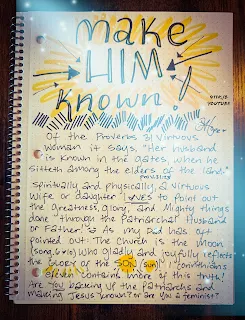 make
HIM
known!
YOUTUBE
Of the Proverbs 31 Virtuous
Woman it says, "Her husband
is known in the gates, when he
sitteth among the elders of the land."
Prov. 31:23
Spiritually and physically, a Virtuous
Wife or daughter LOVES to point out
the Greatness, Glory, and Mighty things
done "through the Patriarcha! Husband
or Father!" As my Dad has oft
pointed out: The Church is the Moon
(Song 6:10) Who gladly and joyfully reflects
the Glory of the SON (sun)! 1 Corinthians
eleven contains more of this truth!
Are you backing up the Patriarchs and
making Jesus "known" or are you a feminist?